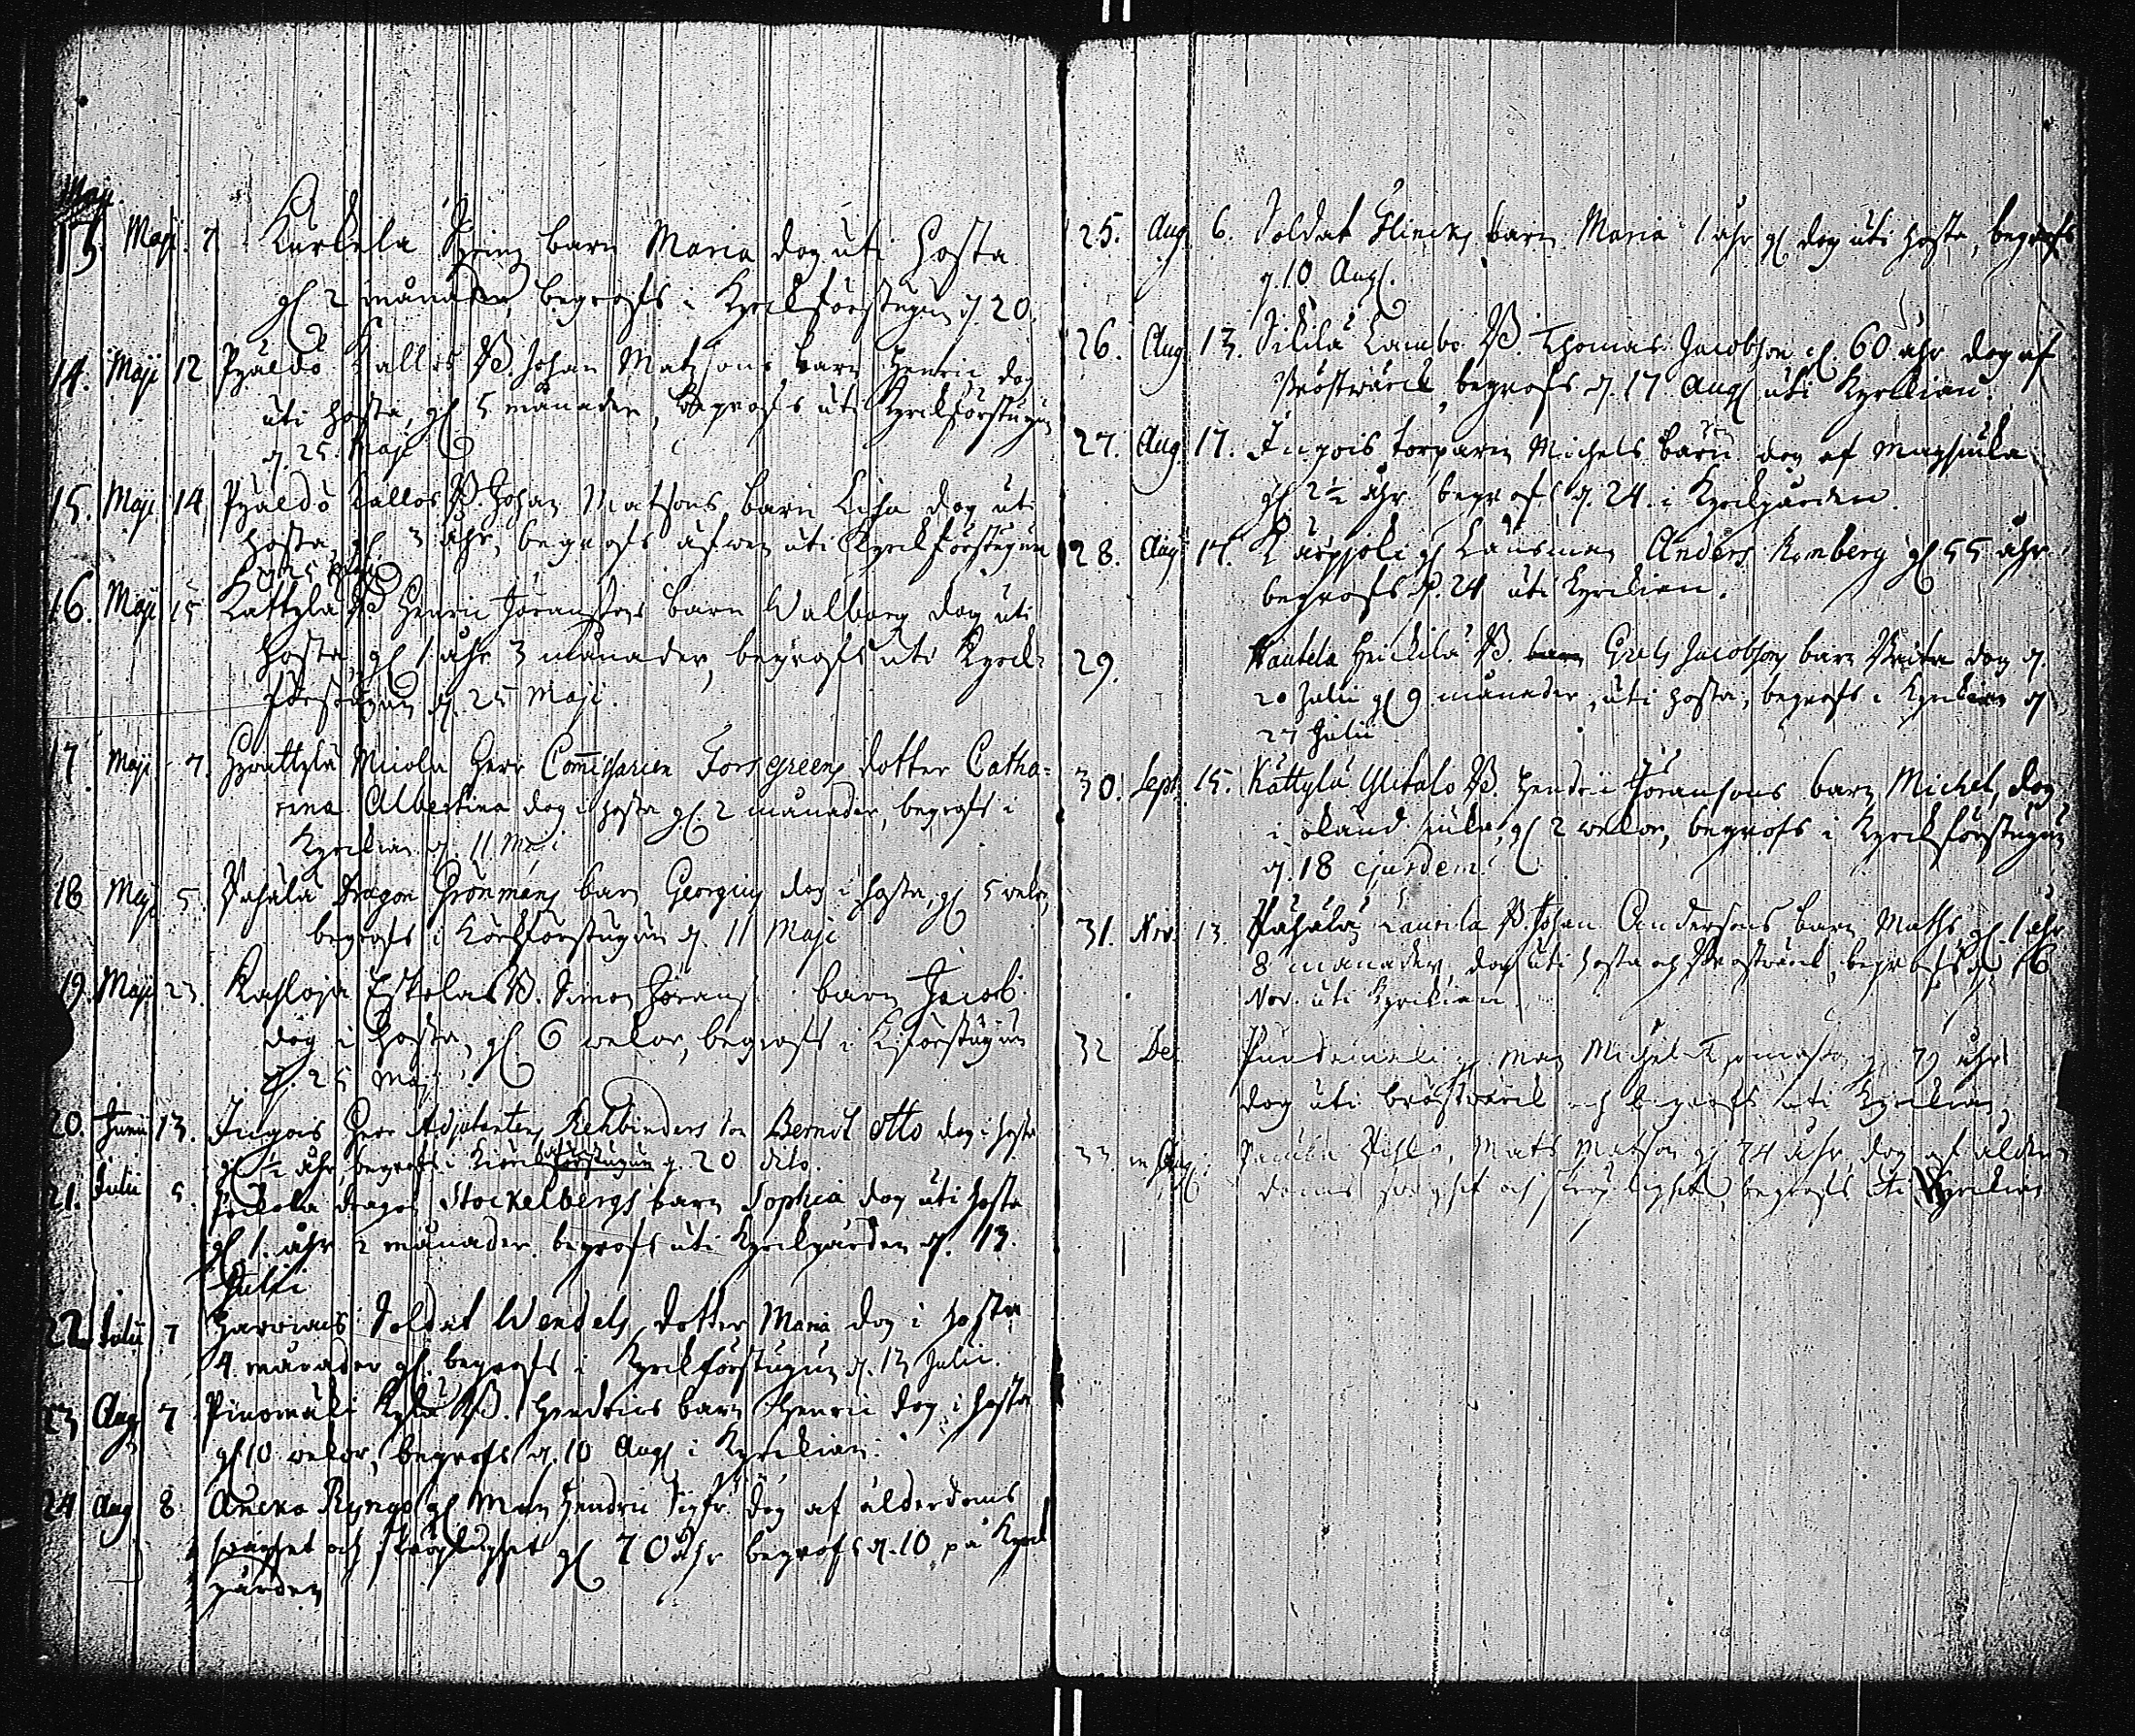 Maji.
13. Maji. 7. Kurkela barn Maria dog uti hosta
gl 2 månader, begrofs i Kyrkförstugun d. 20.
14. Maji 12 Pyäldö Kallos B. Johan Matssons barn Henric dog
uti hosta, gl 5 månader, begrofs uti Kyrkförstugun
d. 25. Maji
15. Maji 14 Pyäldö Kallos B. Johan Matsons barn Lisa dog uti
hosta, gl 3 åhr, begrofs äfwen uti Kyrkförstugun
d. 25 Maji
16. Maji 15 Kattyla B Henric Göranssons barn Walborg dog uti
hosta, gl 1. åhr 3 månader, begrofs uti Kyrck-
förstugun d. 25 Maji.
17 Maji 7. Miola Herr Commissarien Forsgreens dotter Catha-
rina Albertina dog i hosta gl. 2 månader, begrofs i
Kyrckian d. 11 Maji
18 Maji 5. Pahala Dragon Grönmans barn Georgius dog i hosta, gl 5 wekor,
begrofs i Körkförstugun d. 11 Maji
19. Maji 23. Kahloja Eskolas B. Simon Görans barn Jacob
dog i hosta, gl. 6 wekor, begrofs i K:förstugun
d. 25 Maji
20. Junii 13. Ingois Herr Adjutanten Rehbinders son Berndt Otto dog i hosta
gl ½ åhr, begrofs i Körck förstugun d. 20 dito.
21. Julii 5. dragon Stockelbergs barn Sophia dog uti hosta
gl 1. åhr 2 månader. begrofs uti Kyrckgården d. 13.
Julii
22 Julii 7 Soldat Wendels dotter Maria dog i hosta
4. månader gl. begrofs i Kyrckförstugun d. 13 Julii.
23 Aug 7 Pinomäki Kylä B. Hendrics barn Henric dog i hosta
gl 10 wekor, begrofs d. 10 Aug i Kyrckian.
24 Aug 8 Aneko Ryngö gl Man Hendric Sigfr. dog af ålderdoms
swaghet och skröplighet gl 70 åhr begrofs d. 10 på Kyrck
gården
25. Aug. 6. Soldat Flincks barn Maria 1 åhr gl dog uti hosta, begrofs
d. 10 Aug.
26. Aug 13. Sikilä Lambo B. Thomas Jacobson gl. 60 åhr dog af
bröstwärck, begrofs d. 17 Aug uti Kyrckian.
27. Aug. 17. Ingois torparen Michels barn dog af magsiuka
gl. 2½ åhr begrofs d. 24. i Kyrckgården.
28. Aug 17. Karpjoki gl Länsman Anders Romberg gl 55 åhr
begrofs d. 24 uti Kyrckian.
29. Nautela Heickilä B. barn Grels Jacobsons barn Brita dog d.
20 Julii gl 9 månader, uti hosta, begrofs i Kyrckian d.
27 Julii
30. Sept. 15. Kättylä Ylitalo B. Hendric Göransons barn Michel, dog
i okänd siuka, gl 2 wekor, begrofs i Kyrckförstugun
d. 18 ejusdem.
31. Nov. 13. Pahala Laurila B. Johan Andersons barn Maths gl. 1 åhr
8 månader, dog uti hosta och bröstwärck, begrofs d. 16
Nov. uti Kyrckian
32 Dec man Michel Thomasson gl 79 åhr
dog uti bröstwärck och begrofs uti Kyrckian,
33. Mats Matson gl. 74 åhr dog af ålder-
doms swaghet och skröplighet, begrofs uti Kyrckian